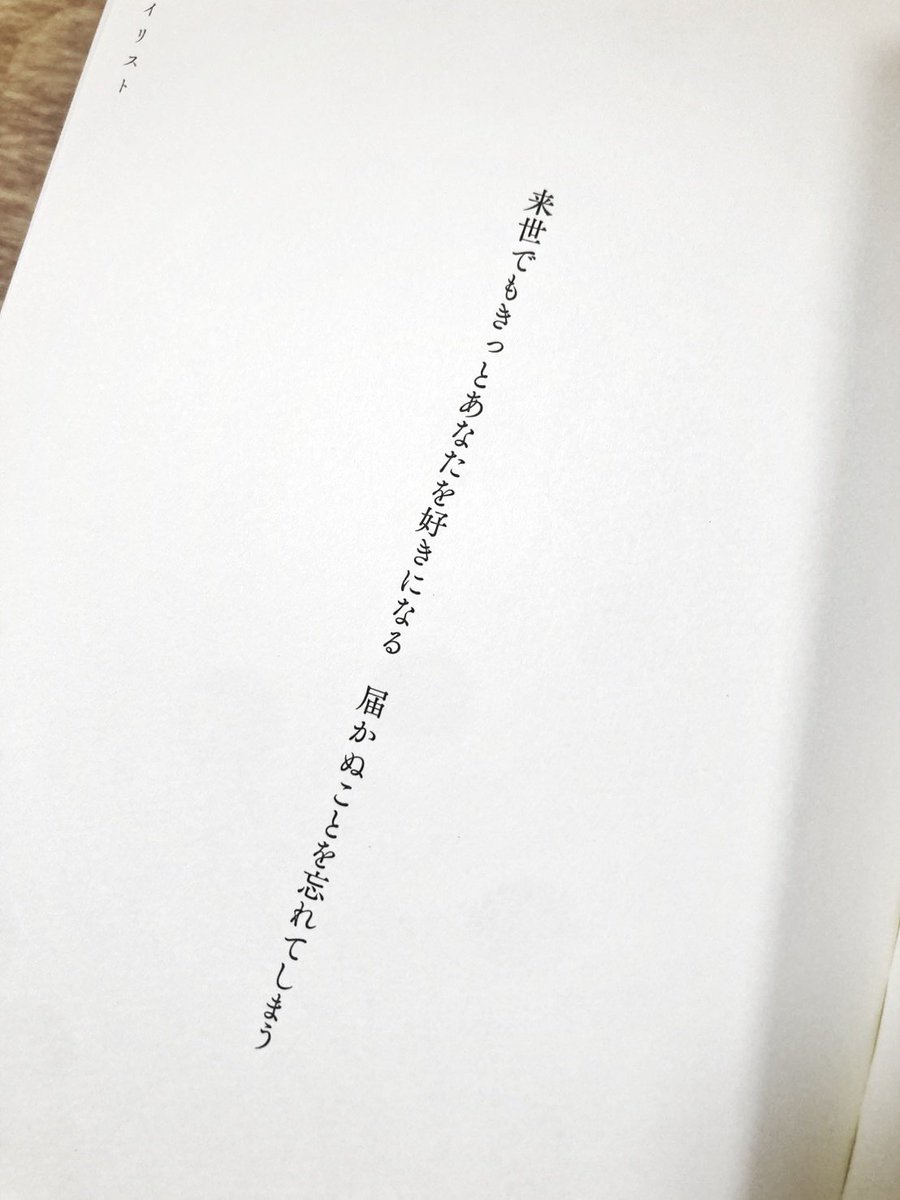 来世でもきっとあなたを好きになる　届かぬことを忘れてしまう
イリスト